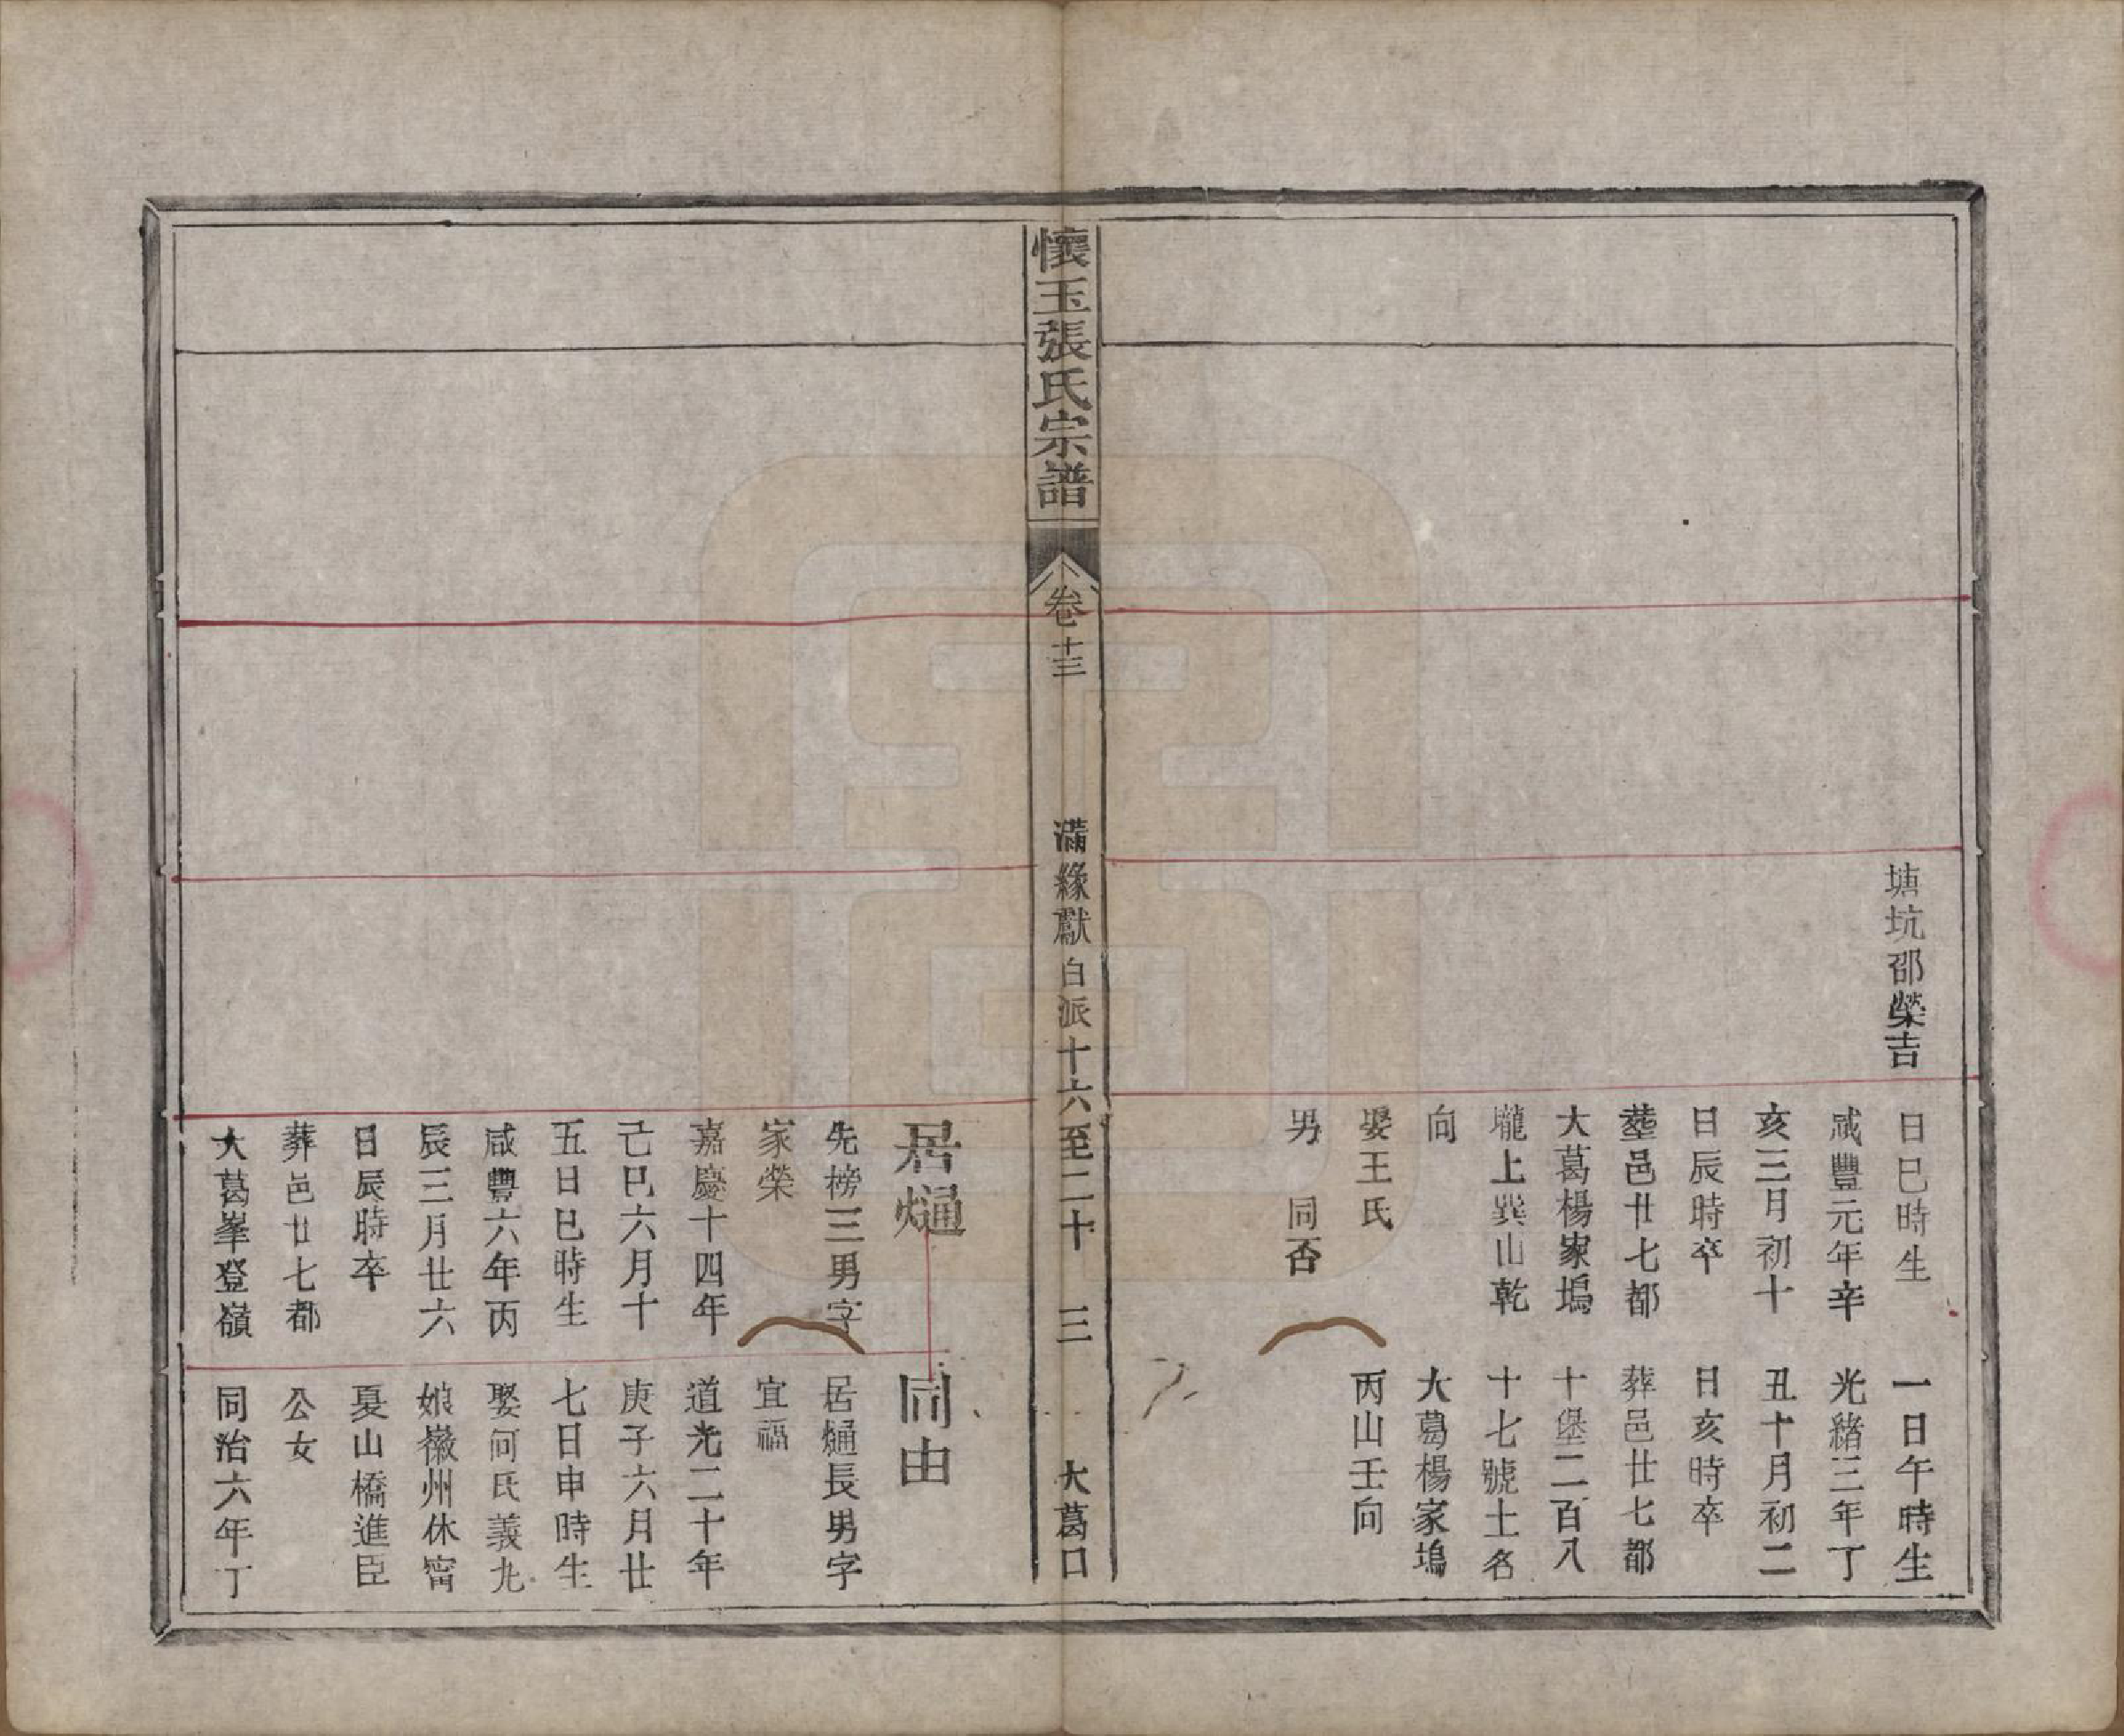 塘坑邵榮吉
日巳時生
咸豐元年辛
亥三月初十
日辰時卒
塟邑廿七都
大葛楊家塢
壠上巽山乾
向
娶王氏
男　同否
一日午時生
光緒三年丁
丑十月初二
日亥時卒
葬邑廿七都
十堡二百八
十七號土名
大葛楊家塢
丙山壬向
懷玉張氏宗譜
卷十三
滿緣獻白派十六至二十
三
大葛口
居熥
先榜三男字
家榮
嘉慶十四年
己巳六月十
五日巳時生
咸豐六年丙
辰三月廿六
日辰時卒
葬邑廿七都
大葛峯登嶺
同由
居熥長男字
宜福
道光二十年
庚子六月廿
七日申時生
娶何氏義九
娘徽州休甯
夏山橋進臣
公女
同治六年丁